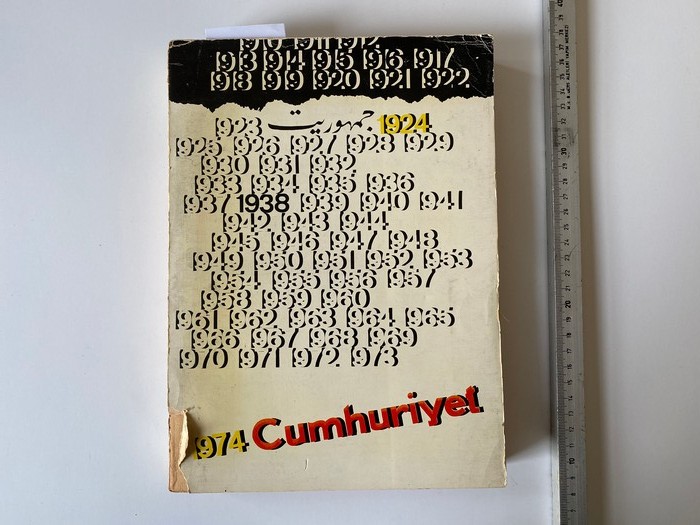 1910 1911 1912
1913 1914 1915 1916 1917
1918 1919 1920 1921 1922
1923 جمهوریت 1924
1925 1926 1927 1928 1929
1930 1931 1932
1933 1934 1935 1936
1937 1938 1939 1940 1941
1942 1943 1944
1945 1946 1947 1948
1949 1950 1951 1952 1953
1954 1955 1956 1957
1958 1959 1960
1961 1962 1963 1964 1965
1966 1967 1968 1969
1970 1971 1972 1973
1974 Cumhuriyet